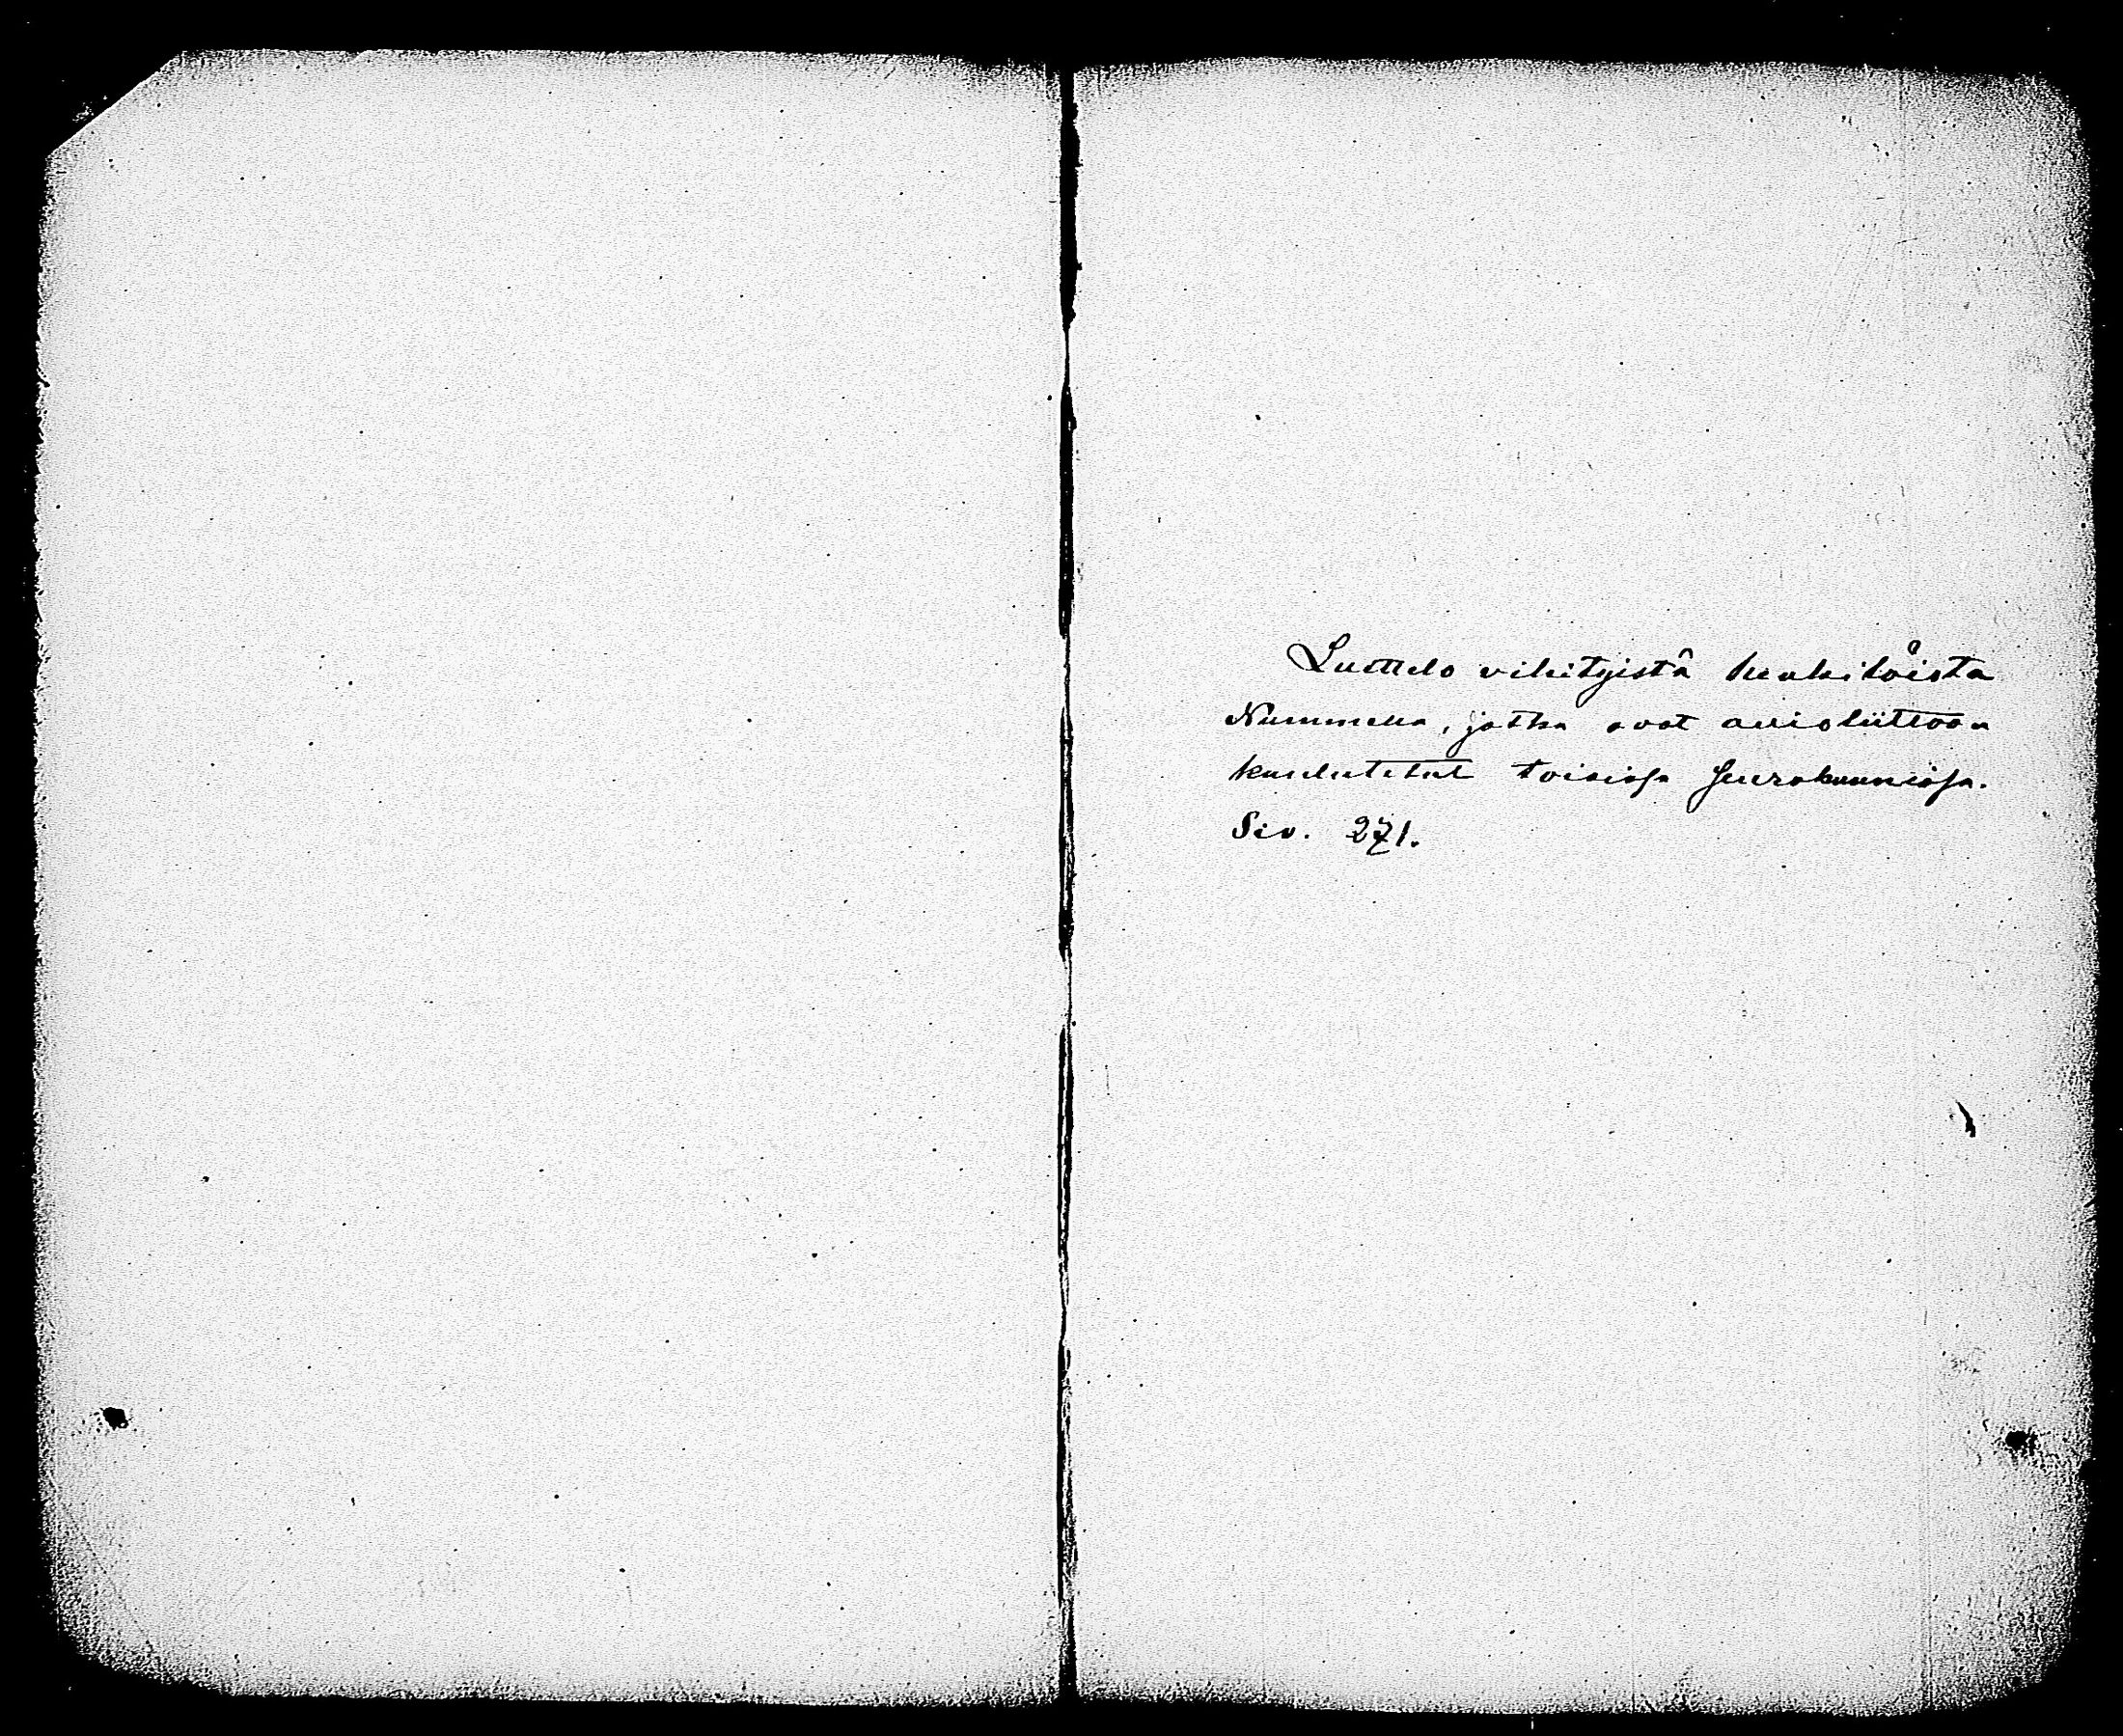 Luettelo vihityistä henkilöista
Nummella, jotka ovat avioliittoon
kuulutetut toisissa seurakunnissa.
Siv. 271.